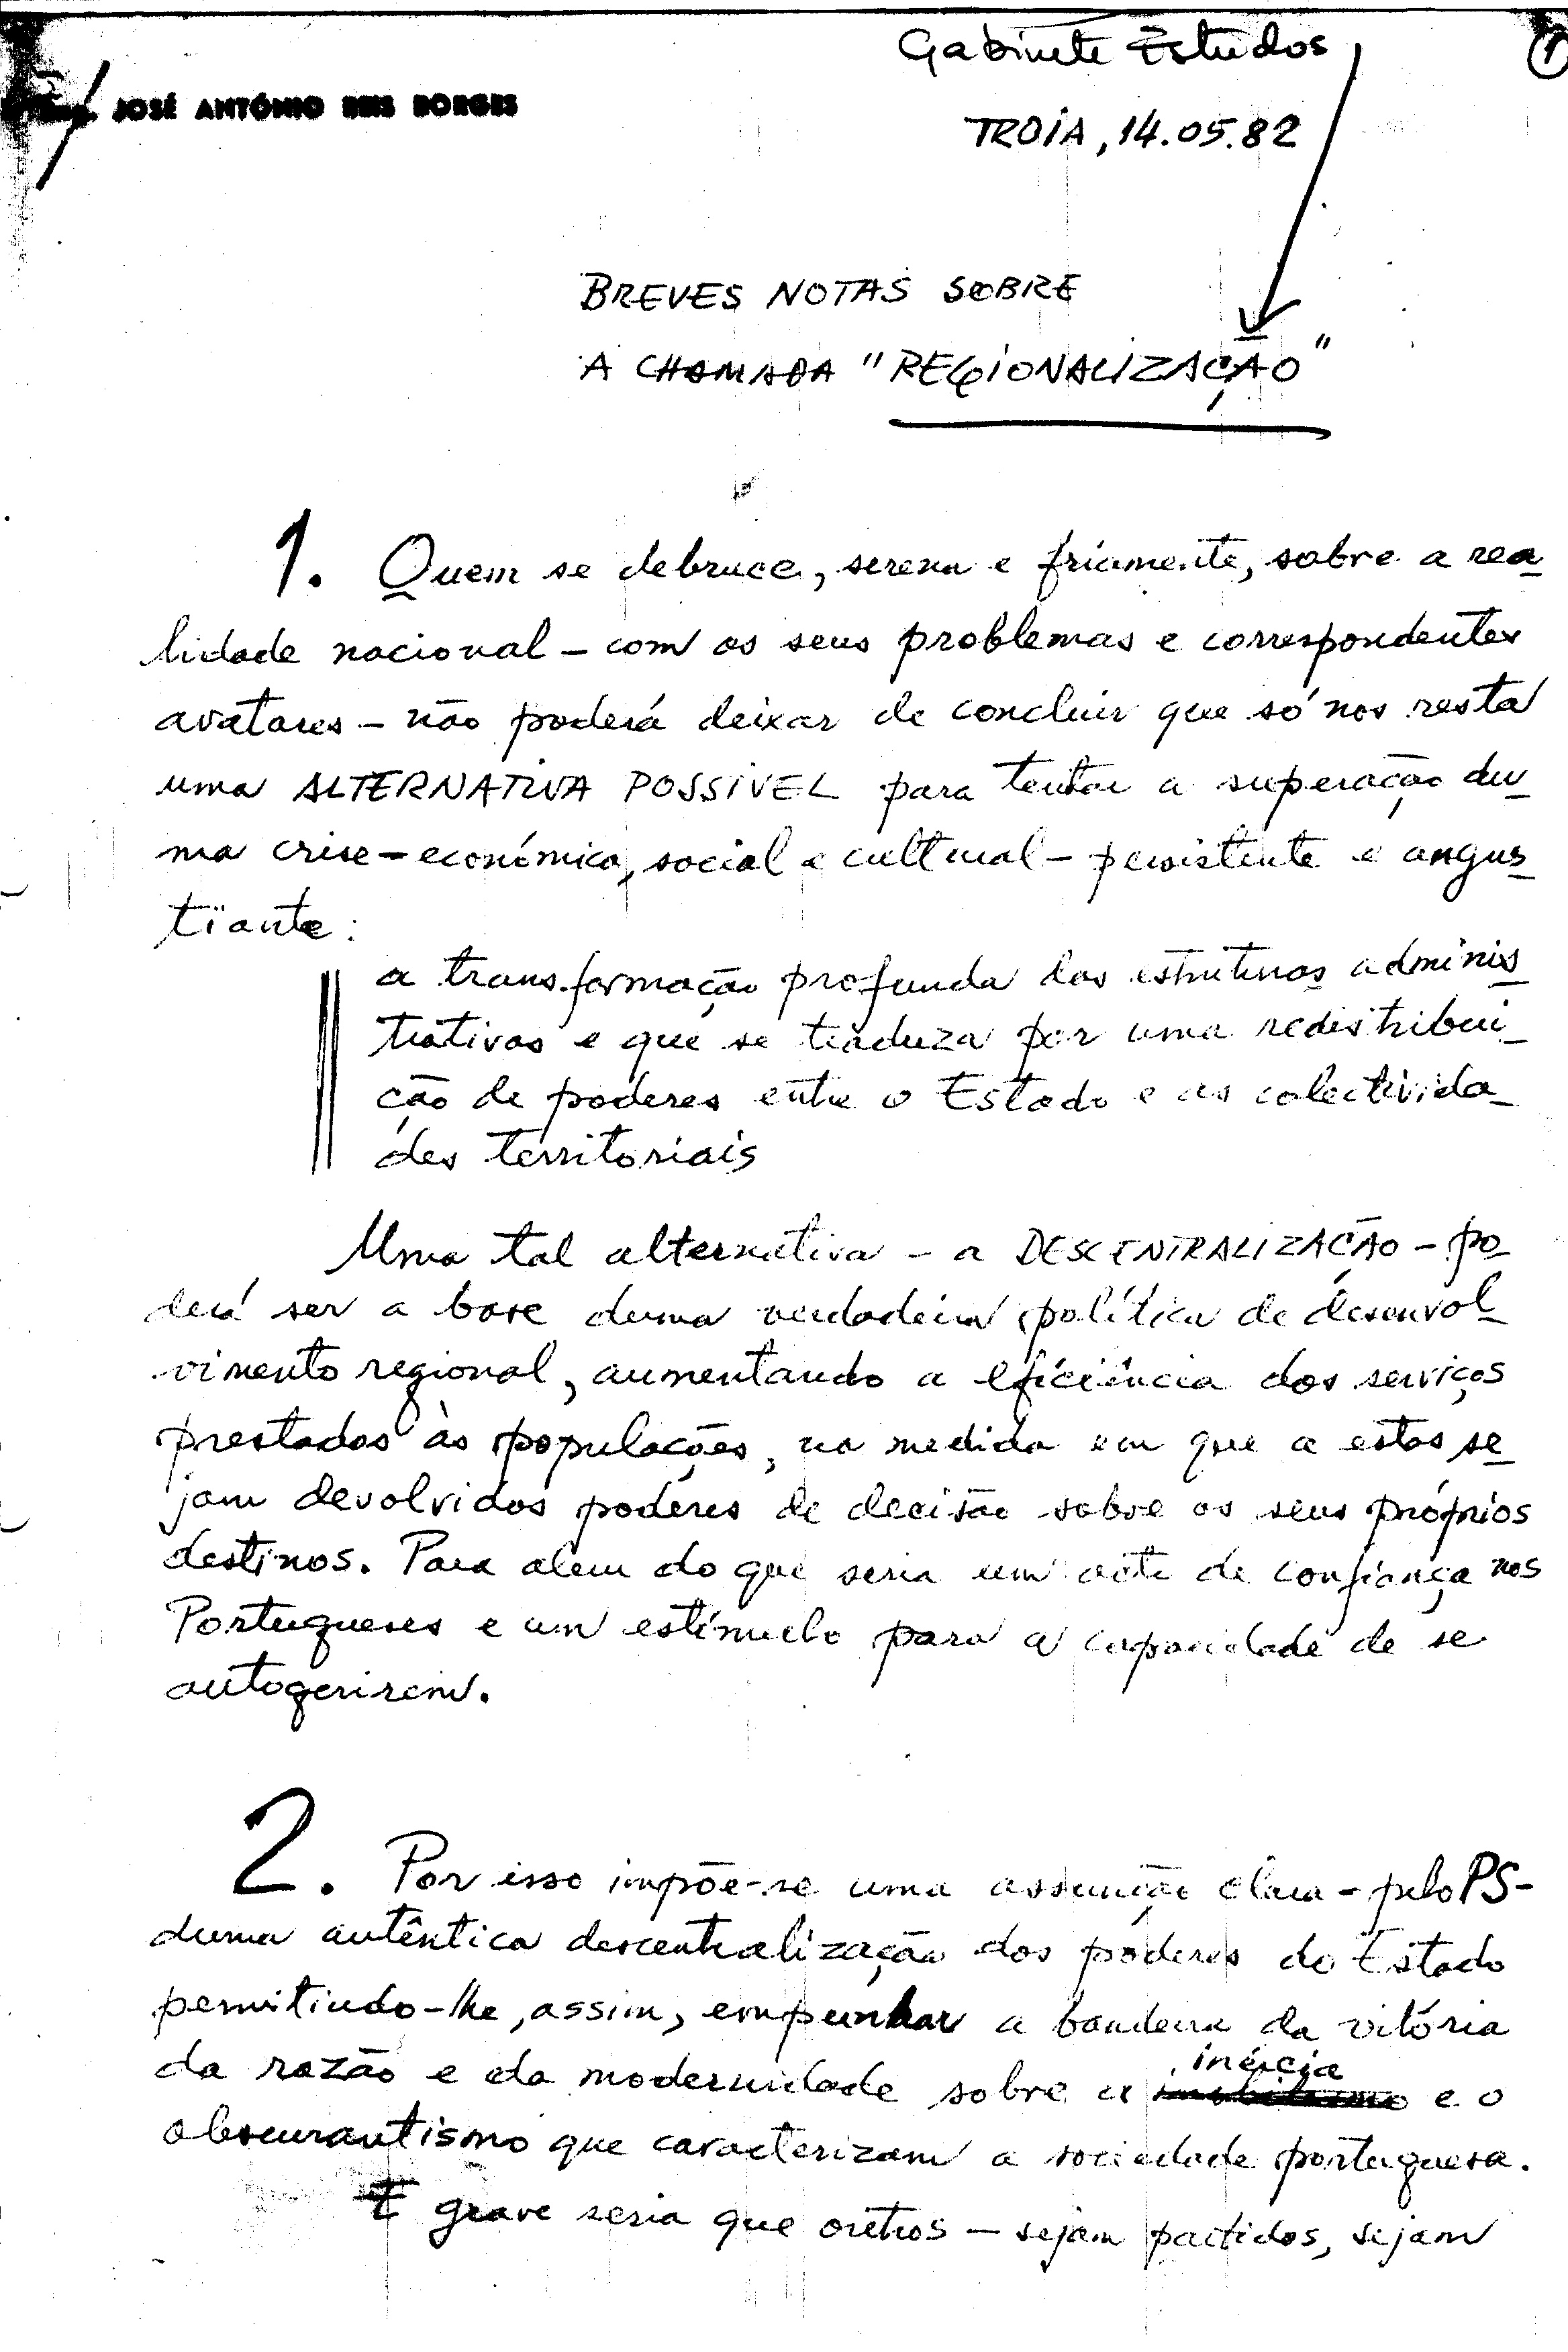 Gabinete Estudos
1
JOSÉ ANTÓNIO REIS BORGES
TROIA, 14.05.82
BREVES NOTAS SOBRE
A CHAMADA "REGIONALIZAÇÃO"
1. Quem se debruce, serena e friamente, sobre a rea
lidade nacional - com os seus problemas e correspondentes
avatares - não poderá deixar de concluir que só nos resta
uma ALTERNATIVA POSSIVEL para tentar a superação du
ma crise - económica, social e cultural - persistente e angus
tiante:
a transformação profunda das estruturas adminis
trativas e que se traduza por uma redistribui
ção de poderes entre o Estado e as colectivida
des territoriais
Uma tal alternativa - a DESCENTRALIZAÇÃO - po
derá ser a base duma verdadeira política de desenvol
vimento regional, aumentando a eficiência dos serviços
prestados às populações, na medida em que a estas se
jam devolvidos poderes de decisão sobre os seus próprios
destinos. Para alem do que seria um acto de confiança nos
Portugueses e um estímulo para a capacidade de se
autogerirem.
2. Por isso impõe-se uma assunção clara - pelo PS -
duma autêntica descentralização dos poderes do Estado
permitindo-lhe, assim, empunhar a bandeira da vitória
da razão e da modernidade sobre a inércia e o
obscurantismo que caracterizam a sociedade portuguesa.
E grave seria que outros - sejam partidos, sejam